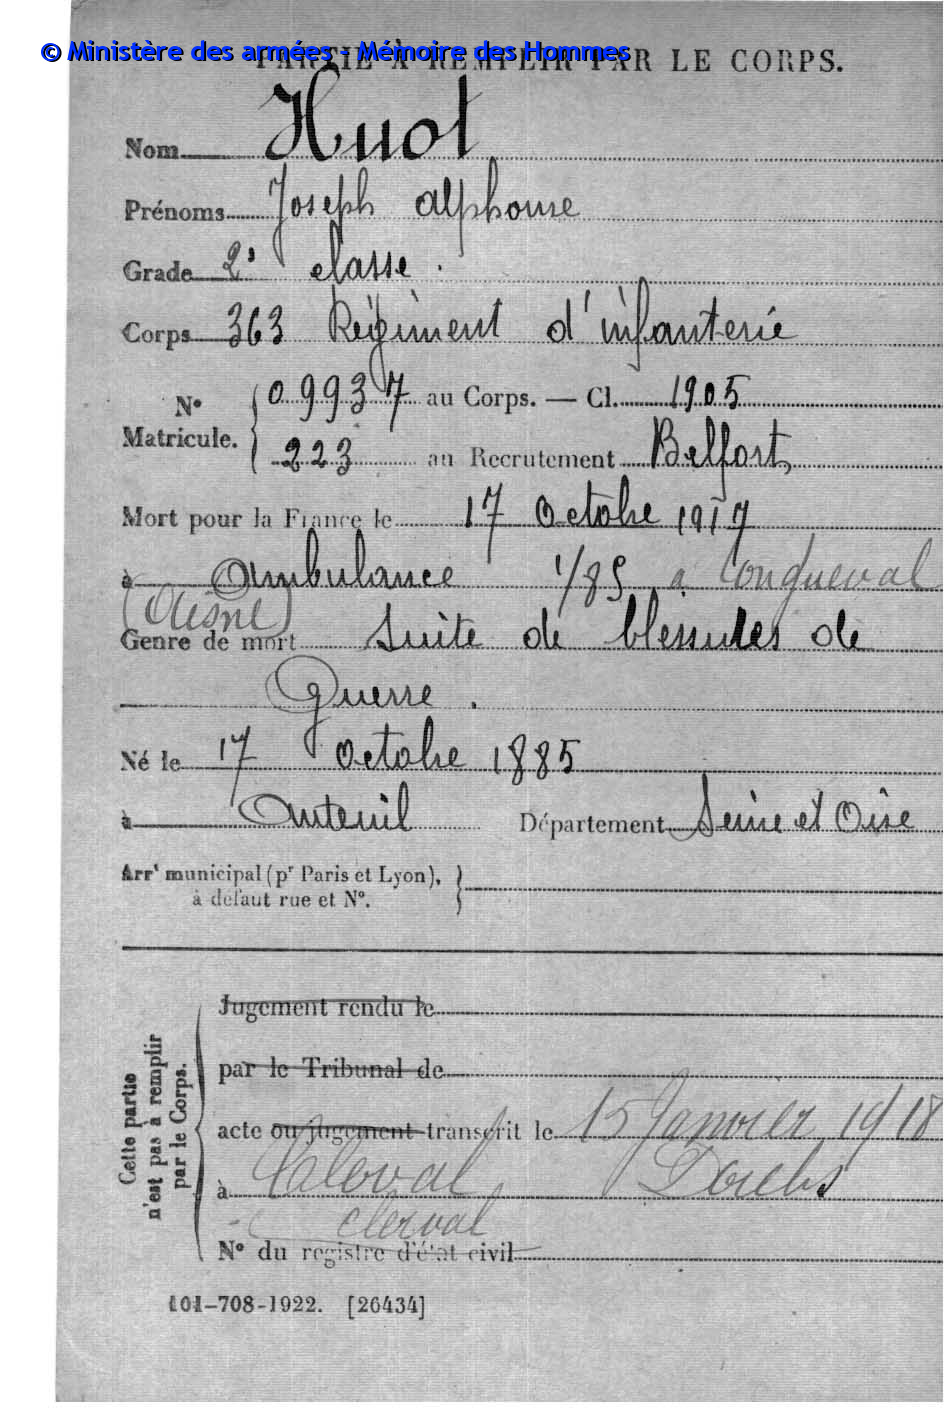 © Ministère des armées - Mémoire des Hommes
PARTIE À REMPLIR PAR LE CORPS.
Nom Huot
Prénoms Joseph Alphonse
Grade 2e classe.
Corps 363 Régiment d'infanterie
N° Matricule. 09937 au Corps. — Cl. 1905
223 au Recrutement Belfort
Mort pour la France le 17 Octobre 1917
à Ambulance 1/85 à Longueval
(Aisne)
Genre de mort Suite de blessures de
Guerre.
Né le 17 Octobre 1885
à Auteuil Département Seine et Oise
Arrt municipal (pr Paris et Lyon),
à défaut rue et N°.
Cette partie
n'est pas à remplir
par le Corps.
Jugement rendu le
par le Tribunal de
acte ou jugement transcrit le 15 Janvier 1918
à Cleroval Doubs
clerval
N° du registre d'état civil
101-708-1922. [26434]